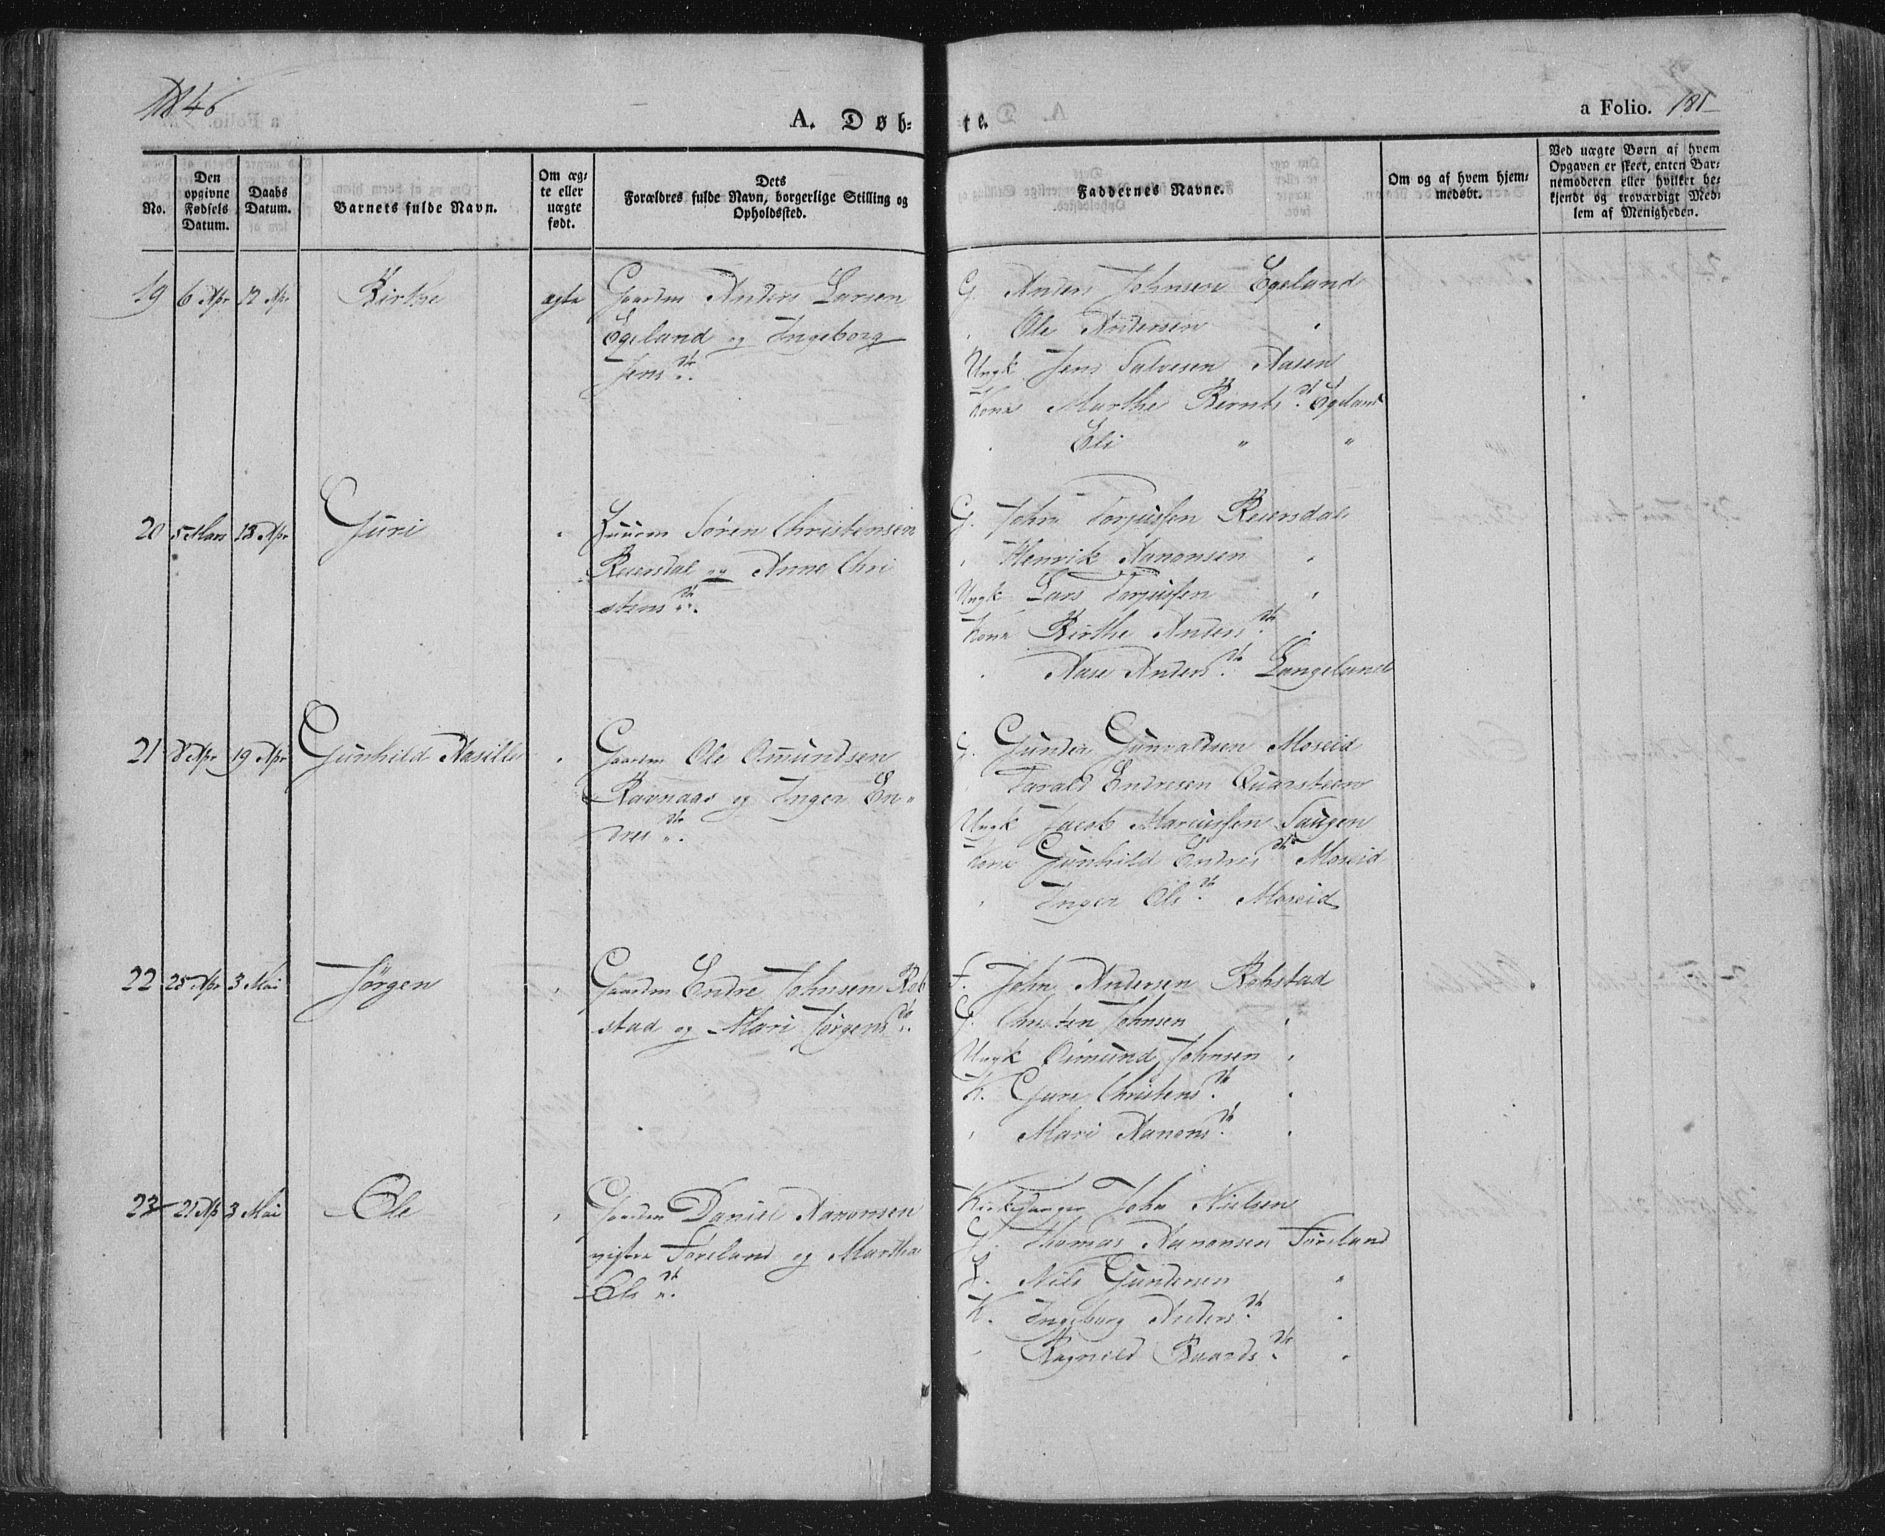 1846
A. Døb-
te.
a Folio. 181
No.
Den opgivne Fødsels Datum.
Daabs Datum.
Barnets fulde Navn.
Om ægte eller uægte født.
Dets Forældres fulde Navn, borgerlige Stilling og Opholdssted.
Faddernes Navne.
Om og af hvem hjemmedøbt.
Ved uægte Børn af hvem Opgaven er skeet, enten Barnemoderen eller hvilket bekjendt og troværdigt Medlem af Menigheden.
19 6 Apr 12 Apr Birthe ægte Gaardm Anders Larsen
Egeland og Ingeborg
Jens dr.
G. Anders Johnsen Egeland
Ole Andersen "
Ungk Jens Salvesen Aasen
Kone Marthe Bernts dr. Egeland
Eli " "
20 5 Mars 13 Apr Guri " Huusm Søren Christensen
Reiersdal og Anne Chri
stens dr.
G. John Torjussen Reiersdal
" Henrik Aanonsen "
Ungk Lars Torjussen "
Kone Birthe Anders dr. "
" Aase Anders dr. Langeland
21 8 Apr 19 Apr Gunhild Aasille " Gaardm Ole Omundsen
Ravnaas og Inger En-
dres dr.
G. Gunder Gunvaldsen Moseid
Tarald Endresen Quarsteen
Ungk Jacob Marcussen Haugen
Kone Gunhild Endres dr. Moseid
" Inger Ols dr. Moseid
22 25 Apr 3 Mai Jørgen " Gaardm Endre Johnsen Rob
stad og Mari Jørgens dr.
F. John Andersen Robstad
G. Christen Johnsen "
Ungk Omund Johnsen "
K. Gure Christens dr. "
" Mari Aanons dr. "
23 21 Ap 3 Mai Ole " Gaardm Daniel Aanonsen
vestre Føreland og Marthe
Ols dr.
Kirkesanger John Nielsen
G. Thomas Aanonsen Føreland
G. Nils Gundersen "
K. Ingeborg Anders dr. "
" Ragnild Baards dr. "